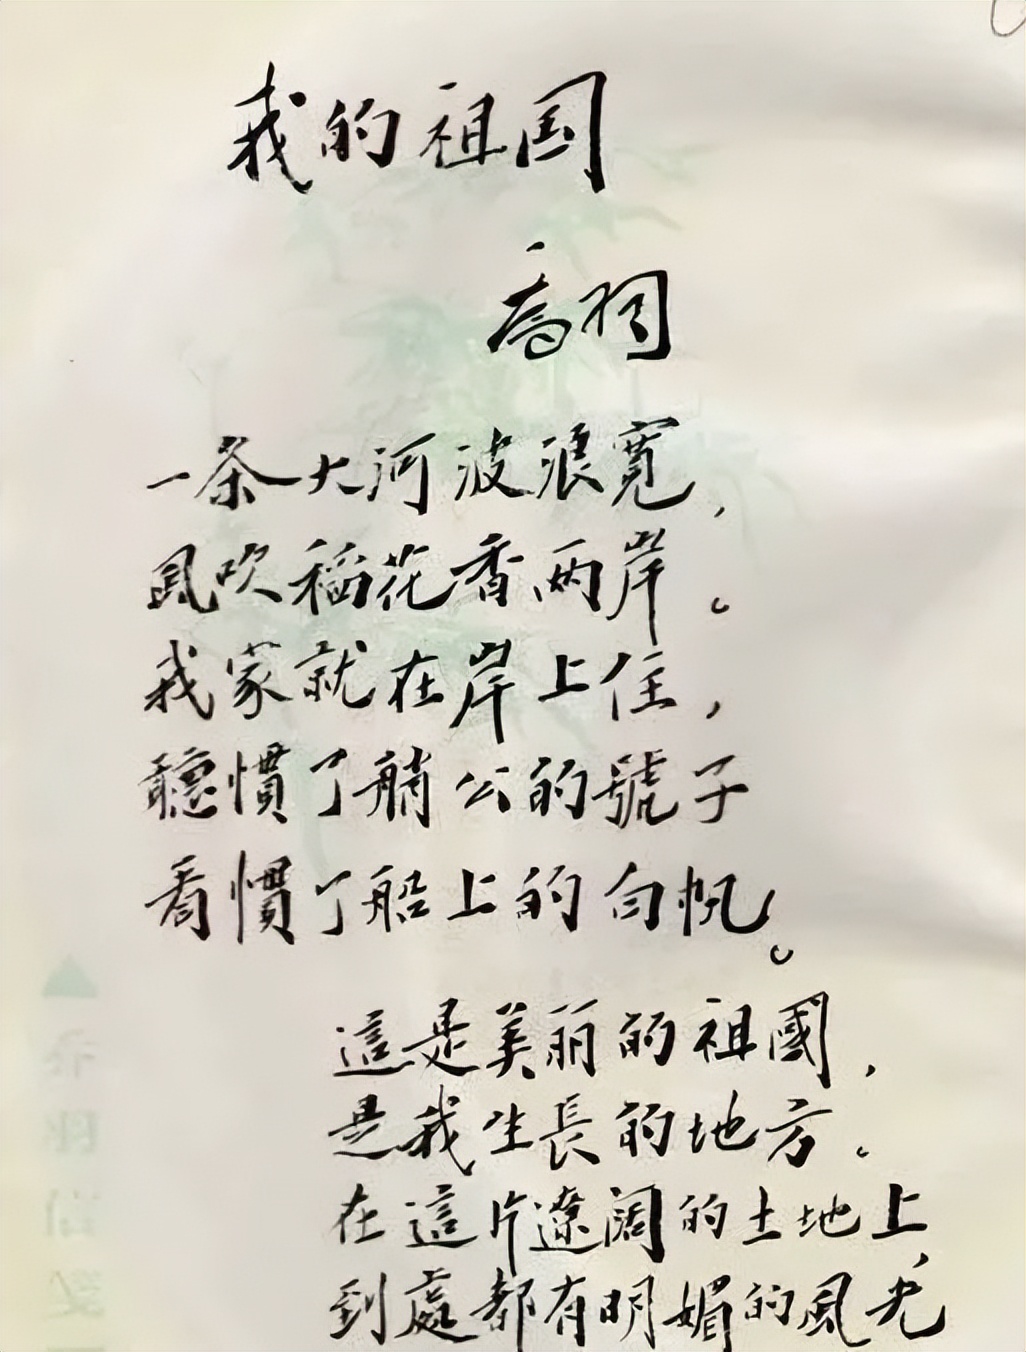 我的祖国
乔羽词
一条大河波浪寬，
風吹稻花香两岸。
我家就在岸上住，
聽慣了艄公的號子
看慣了船上的白帆。
這是美丽的祖國，
是我生長的地方。
在這片遼阔的土地上，
到處都有明媚的風光